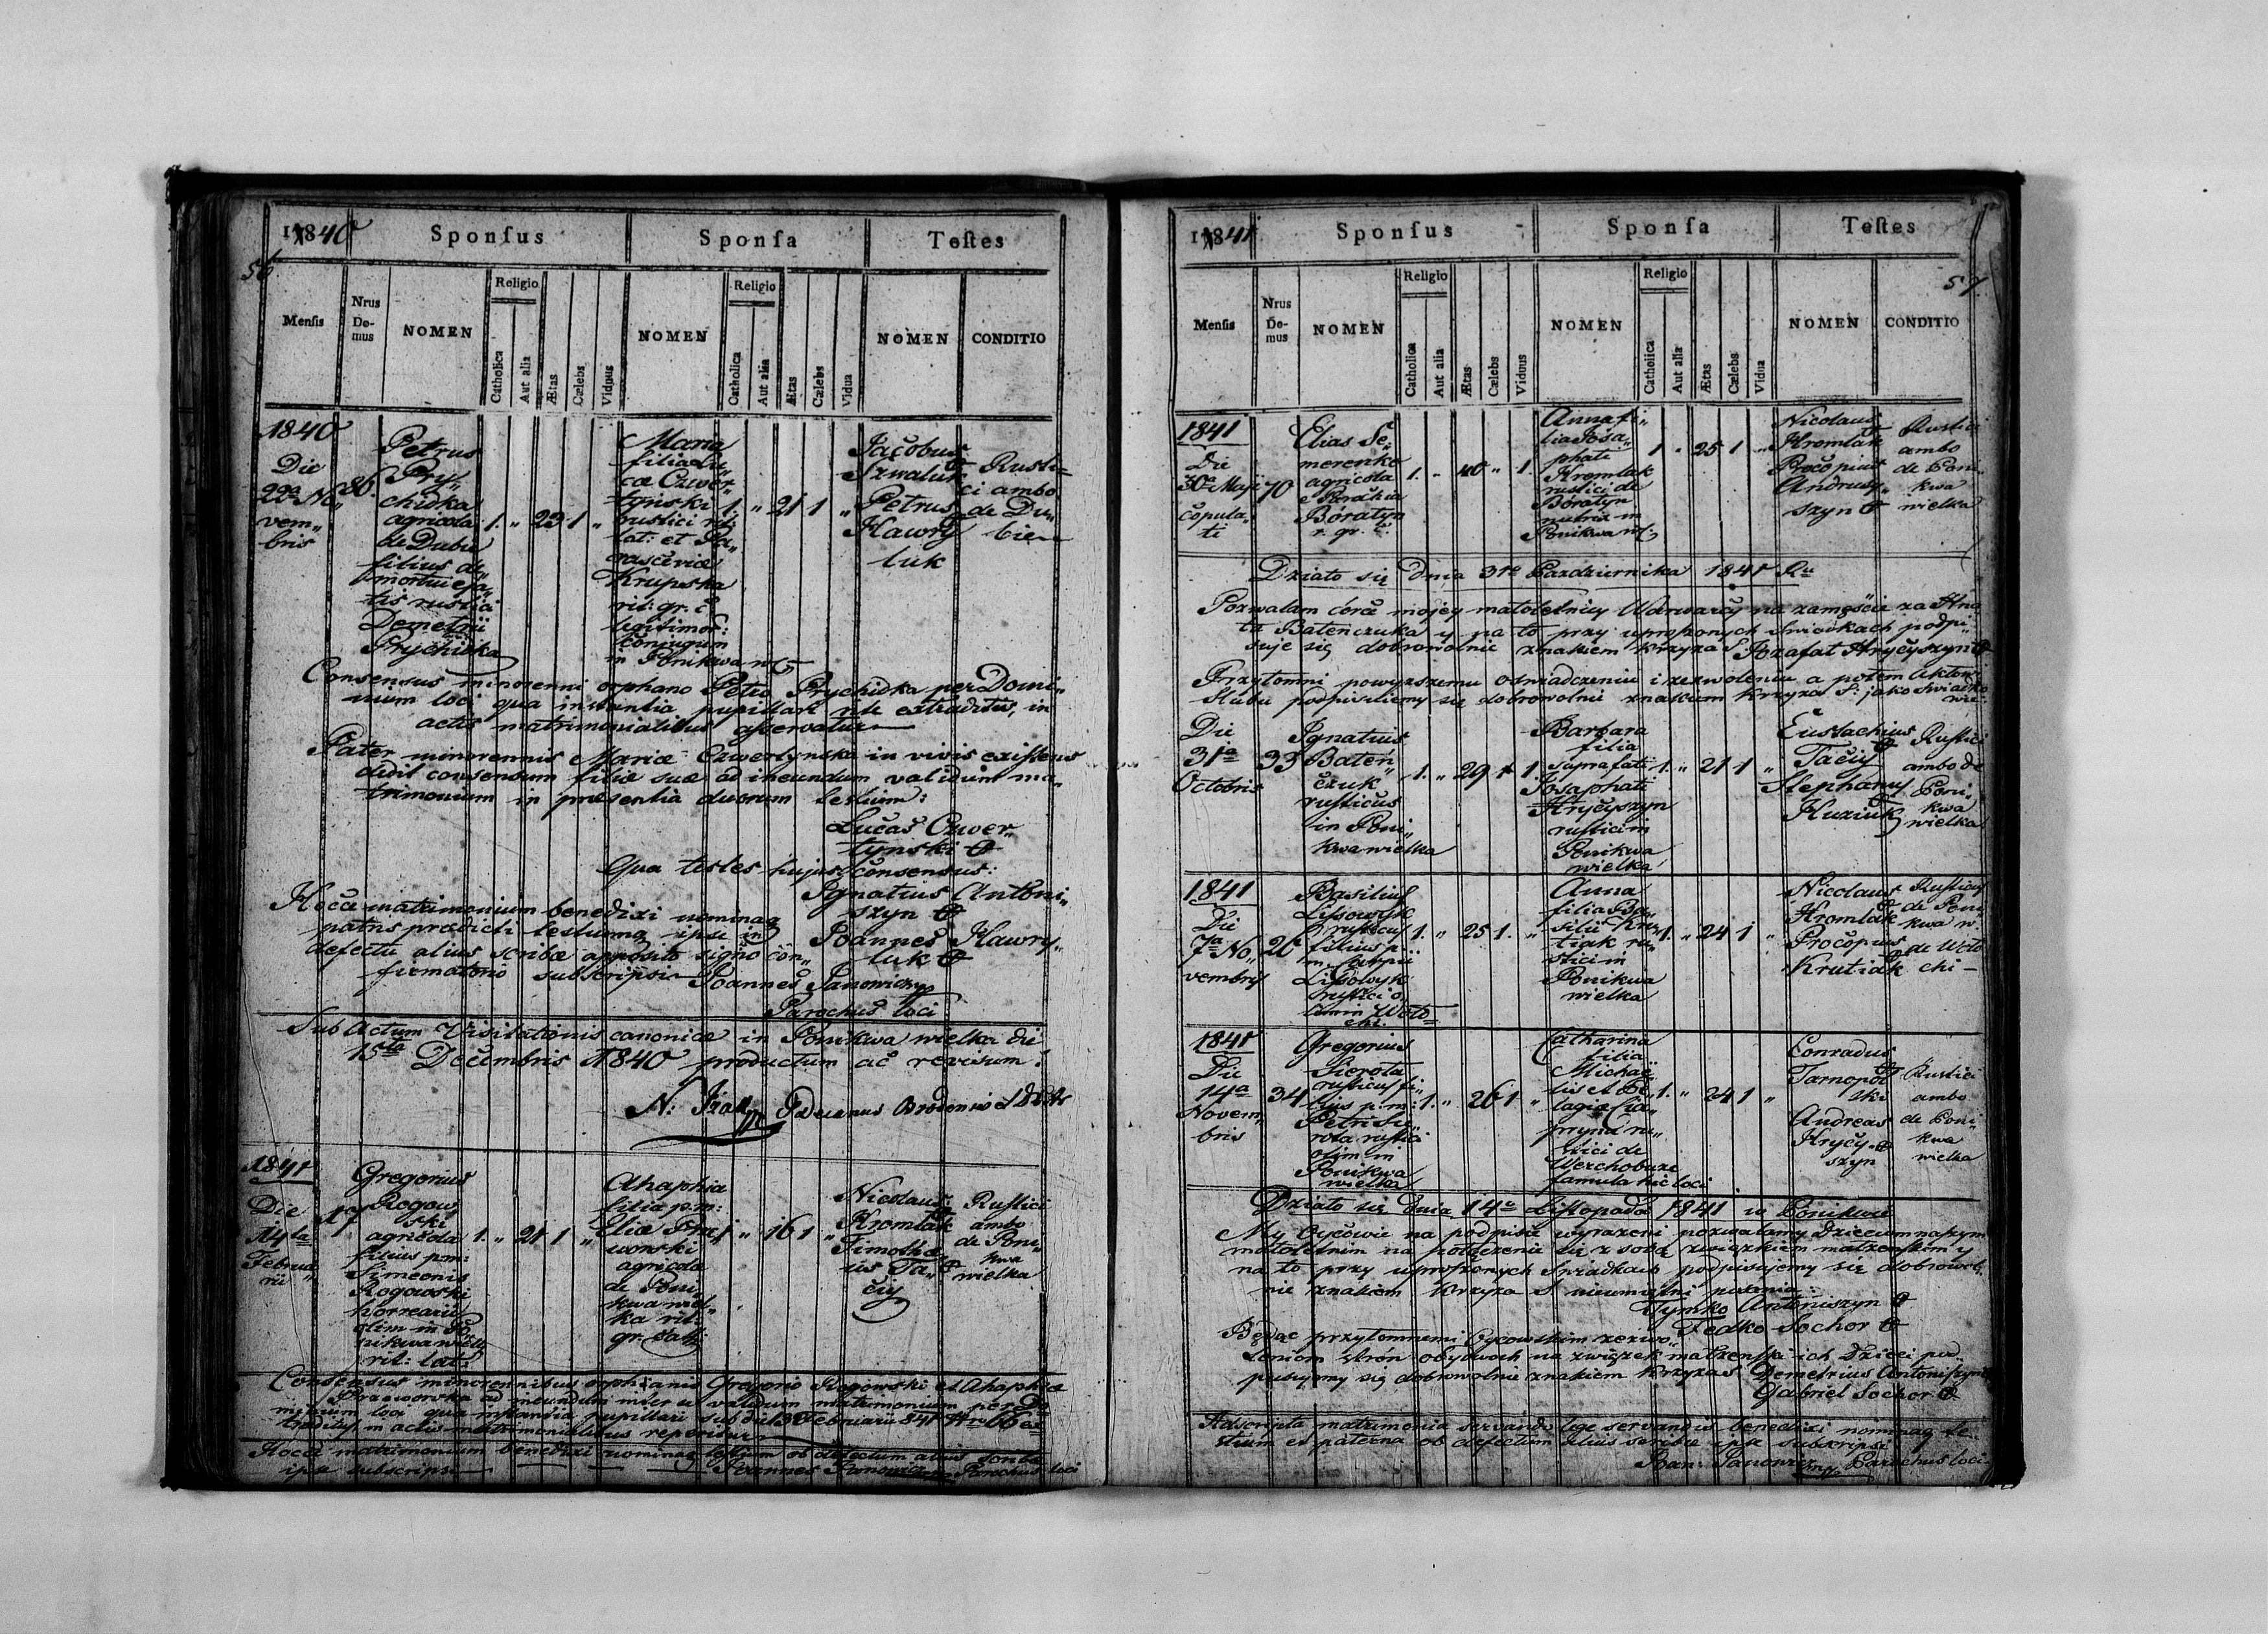 1840 Sponsus Sponsa Testes
56
Mensis Nrus Domus NOMEN Religio Catholica Aut alia Ætas Cælebs Viduus NOMEN Religio Catholica Aut alia Ætas Cælebs Vidua NOMEN CONDITIO
1840
Die
22a No„
vem„
bris
86.
Petrus
Pry„
chidka
agricola
de Dubie
filius de„
mortui
rustici
Demetrii
Prychidka
1. „ 23 1 „
Maria
filia Lu„
cæ Czwer„
tynski
rustici rit:
lat: et Pa„
rasceviæ
Krupska
rit: gr: c
legitimor:
conjugum
in Ponikwa
1. „ 21 1 „
Jacobus
Iwaluk
Petrus
Hawry
luk
Rusti„
ci ambo
de Du„
bie
Consensus minorenni orphano Petro Prychidka per Domi„
nium loci qua instantia pupillari extraditus, in
actis matrimonialibus asservatur
Pater minorennis Mariæ Czwertynska in vivis existens
dedit consensum filiæ suæ ad ineundum validum ma„
trimonium in præsentia duorum testium:
Lucas Czwer„
tynski
Qua testes hujus consensus:
Ignatius Antoni„
szyn
Joannes Hawry„
luk
Hocce matrimonium benedixi nominaq
patris prædicti testiumq ipse in
defectu alius scribæ apposito signo con„
firmatorio subscripsi Joannes Janowicz
Parochus loci
Sub actum Visitationis canonicæ in Ponikwa wielka die
15ta Decembris 1840 productum ac revisum:
1841
Die
14ta
Februa
rii
17
Gregorius
Rogow
ski
agricola
filius p.m:
Simeonis
Rogowski
horrearii
olim in Po
nikwa wielk
rit: lat:
1. „ 21 1 „
Ahaphia
filia p.m:
Eliæ
worski
agricola
de Poni
kwa wiel„
ka rit:
gr. cath:
1 „ 16 1 „
Nicolaus
Kromlak
Timothe
us Ta„
ciy
Rustici
ambo
de Poni„
kwa
wielka
Consensus minorennibus orphanis Gregorio Rogowski et Ahaphiæ
ad ineundum inter se validum matrimonium per Do
minium loci qua instantia pupillari sub die 13 Februarii 841 Nro 66 ex
traditus, in actis matrimonialibus reperitur
Hocce matrimonium benedixi nominaq testium ob defectum alius scribæ
ipse subscripsi Joannes Janowicz Parochus loci
1841 Sponsus Sponsa Testes
57
Mensis Nrus Domus NOMEN Religio Catholica Aut alia Ætas Cælebs Viduus NOMEN Religio Catholica Aut alia Ætas Cælebs Vidua NOMEN CONDITIO
1841
Die
30a Maji
copula„
ti
70
Elias Se„
merenko
agricola
Boratyn
r. gr. c:
1. „ 40 „ 1.
Anna fi„
lia Josa„
phati
Kromlak
rustici de
Boratyn
in
Ponikwa
1 „ 25 1 „
Nicolaus
Kromlak
Procopius
Andrusy„
szyn
Rustici
ambo
de Poni„
kwa
wielka
Działo się dnia 31go Pazdziernika 1841 Ru
Pozwalam córce mojey małoletniey Warwarzy na zamęście za Hna
ta Batenczuka y na to przy uproszonych świadkach podpi„
suje się dobrowolnie znakiem krzyża S. Jozafat Hryczyszyn
Przytomni powyzszemu oswiadczeniu i zezwoleniu a potem aktowi
slubu podpisaliśmy się dobrowolnie znakiem krzyża S: jako świadko
wie
Die
31a
Octobris
33
Ignatius
Baten„
czuk
rusticus
in Poni„
kwa wielka
1. „ 29 „ 1
Barbara
filia
suprafati
Josaphati
Hryczyszyn
rustici in
Ponikwa
wielka
1. „ 21 1 „
Eustachius
Taciy
Stephanus
Huziuk
Rustici
ambo de
Poni„
kwa
wielka
1841
Die
7a No„
vembris
Basilius
Lissowyk
rusticus
filius p.
m.
Lissowyk
rustici o„
lim in Woło
chi.
1. „ 25 1. „
Anna
filia Ba„
silii Kru„
tiak ru„
stici in
Ponikwa
wielka
1. „ 24 1 „
Nicolaus
Kromlak
Procopius
Krutiak
Rusticus
de Poni„
kwa w.
de Woło
chi
1841
Die
14a
Novem„
bris
34
Gregorius
Sierota
rusticus fi„
lius p.m:
Petri Sie„
rota rustici
olim in
Ponikwa
wielka
1. „ 26 1 „
Catharina
filia
Michae„
lis et Pe„
lagiæ
ru„
stici de
Werchobuże
famula hic loci
1. „ 24 1 „
Conradus
Tarnopol
ski
Andreas
Hryczy„
szyn
Rustici
ambo
de Poni„
kwa
wielka
Działo się dnia 14go Listopada 1841 w Ponikwie
My Oycowie na podpisie wyrażeni pozwalamy Dzieciom naszym
małoletnim na połączenie się z sobą związkiem małżeńskim y
na to przy uproszonych świadkach podpisujemy się dobrowol„
nie znakiem krzyża S nieumiejętni pisma:
Tymko Antoniszyn
Fedko Sochor
Będąc przytomnemi Oycowskim zezwo„
leniom strón obydwoch na związek małżeński ich dzieci pod
pisujemy się dobrowolnie znakiem krzyża S Demetrius Antoniszyn
Gabriel Sochor
Adscripta matrimonia servandis lege servandis benedixi nominaq te„
stium et paterna ob defectum alius scribæ ipse subscripsi
Joan: Janowicz Parochus loci